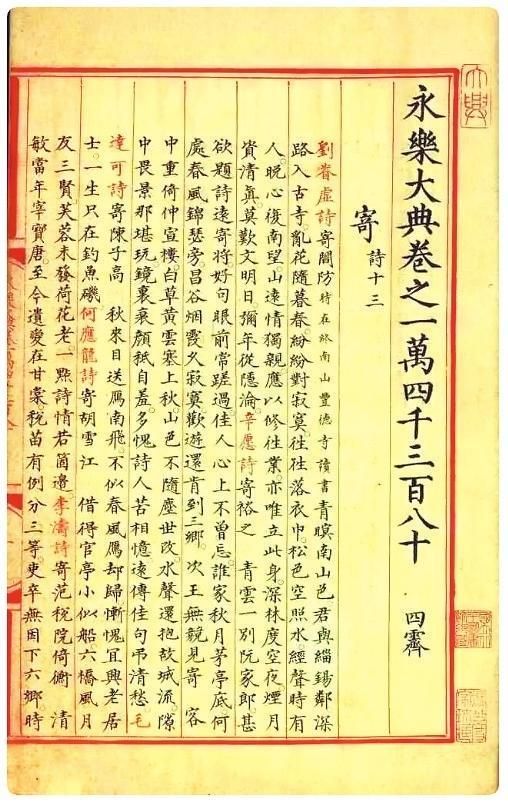 永樂大典卷之一萬四千三百八十 四霽
寄 詩十三
劉眘虛詩寄閻防時在終南山豐德寺讀書青暝南山色君與緇錫鄰深
路入古寺亂花隨暮春紛紛對寂寞往往落衣巾松色空照水經聲時有
人晚心復南望山遠情獨親應以修往業亦唯立此身深林度空夜煙月
資清真莫歎文明日彌年從隱淪辛愿詩寄裕之 青雲一別阮家郎甚
欲題詩遠寄將好句眼前常蹉過佳人心上不曾忘誰家秋月茅亭底何
處春風錦瑟旁昌谷烟霞久寂寞歡遊還肯到三鄉 次王無競見寄 客
中重倚仲宣樓白草黃雲塞上秋山色不隨塵世改水聲還抱故城流隙
中畏景那堪玩鏡裏衰顏秪自羞多愧詩人苦相憶遠傳佳句弔清愁毛
達可詩寄陳子高 秋來目送鴈南飛不似春風鴈却歸慚愧宜興老居
士一生只在釣魚磯何應龍詩寄胡雪江 借得官亭小似船六橋風月
友三賢芙蓉未發荷花老一點詩情若箇邊李濤詩寄范稅院倚衡 清
敏當年宰寶唐至今遺愛在甘棠稅苗有例分三等吏卒無因下六鄉時